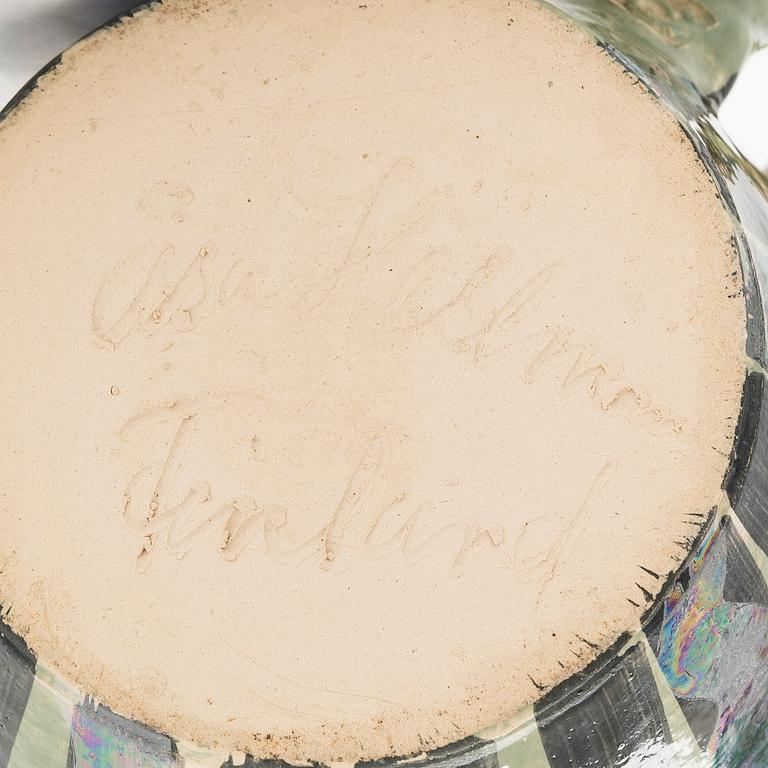 Åsa Kellman
Finland